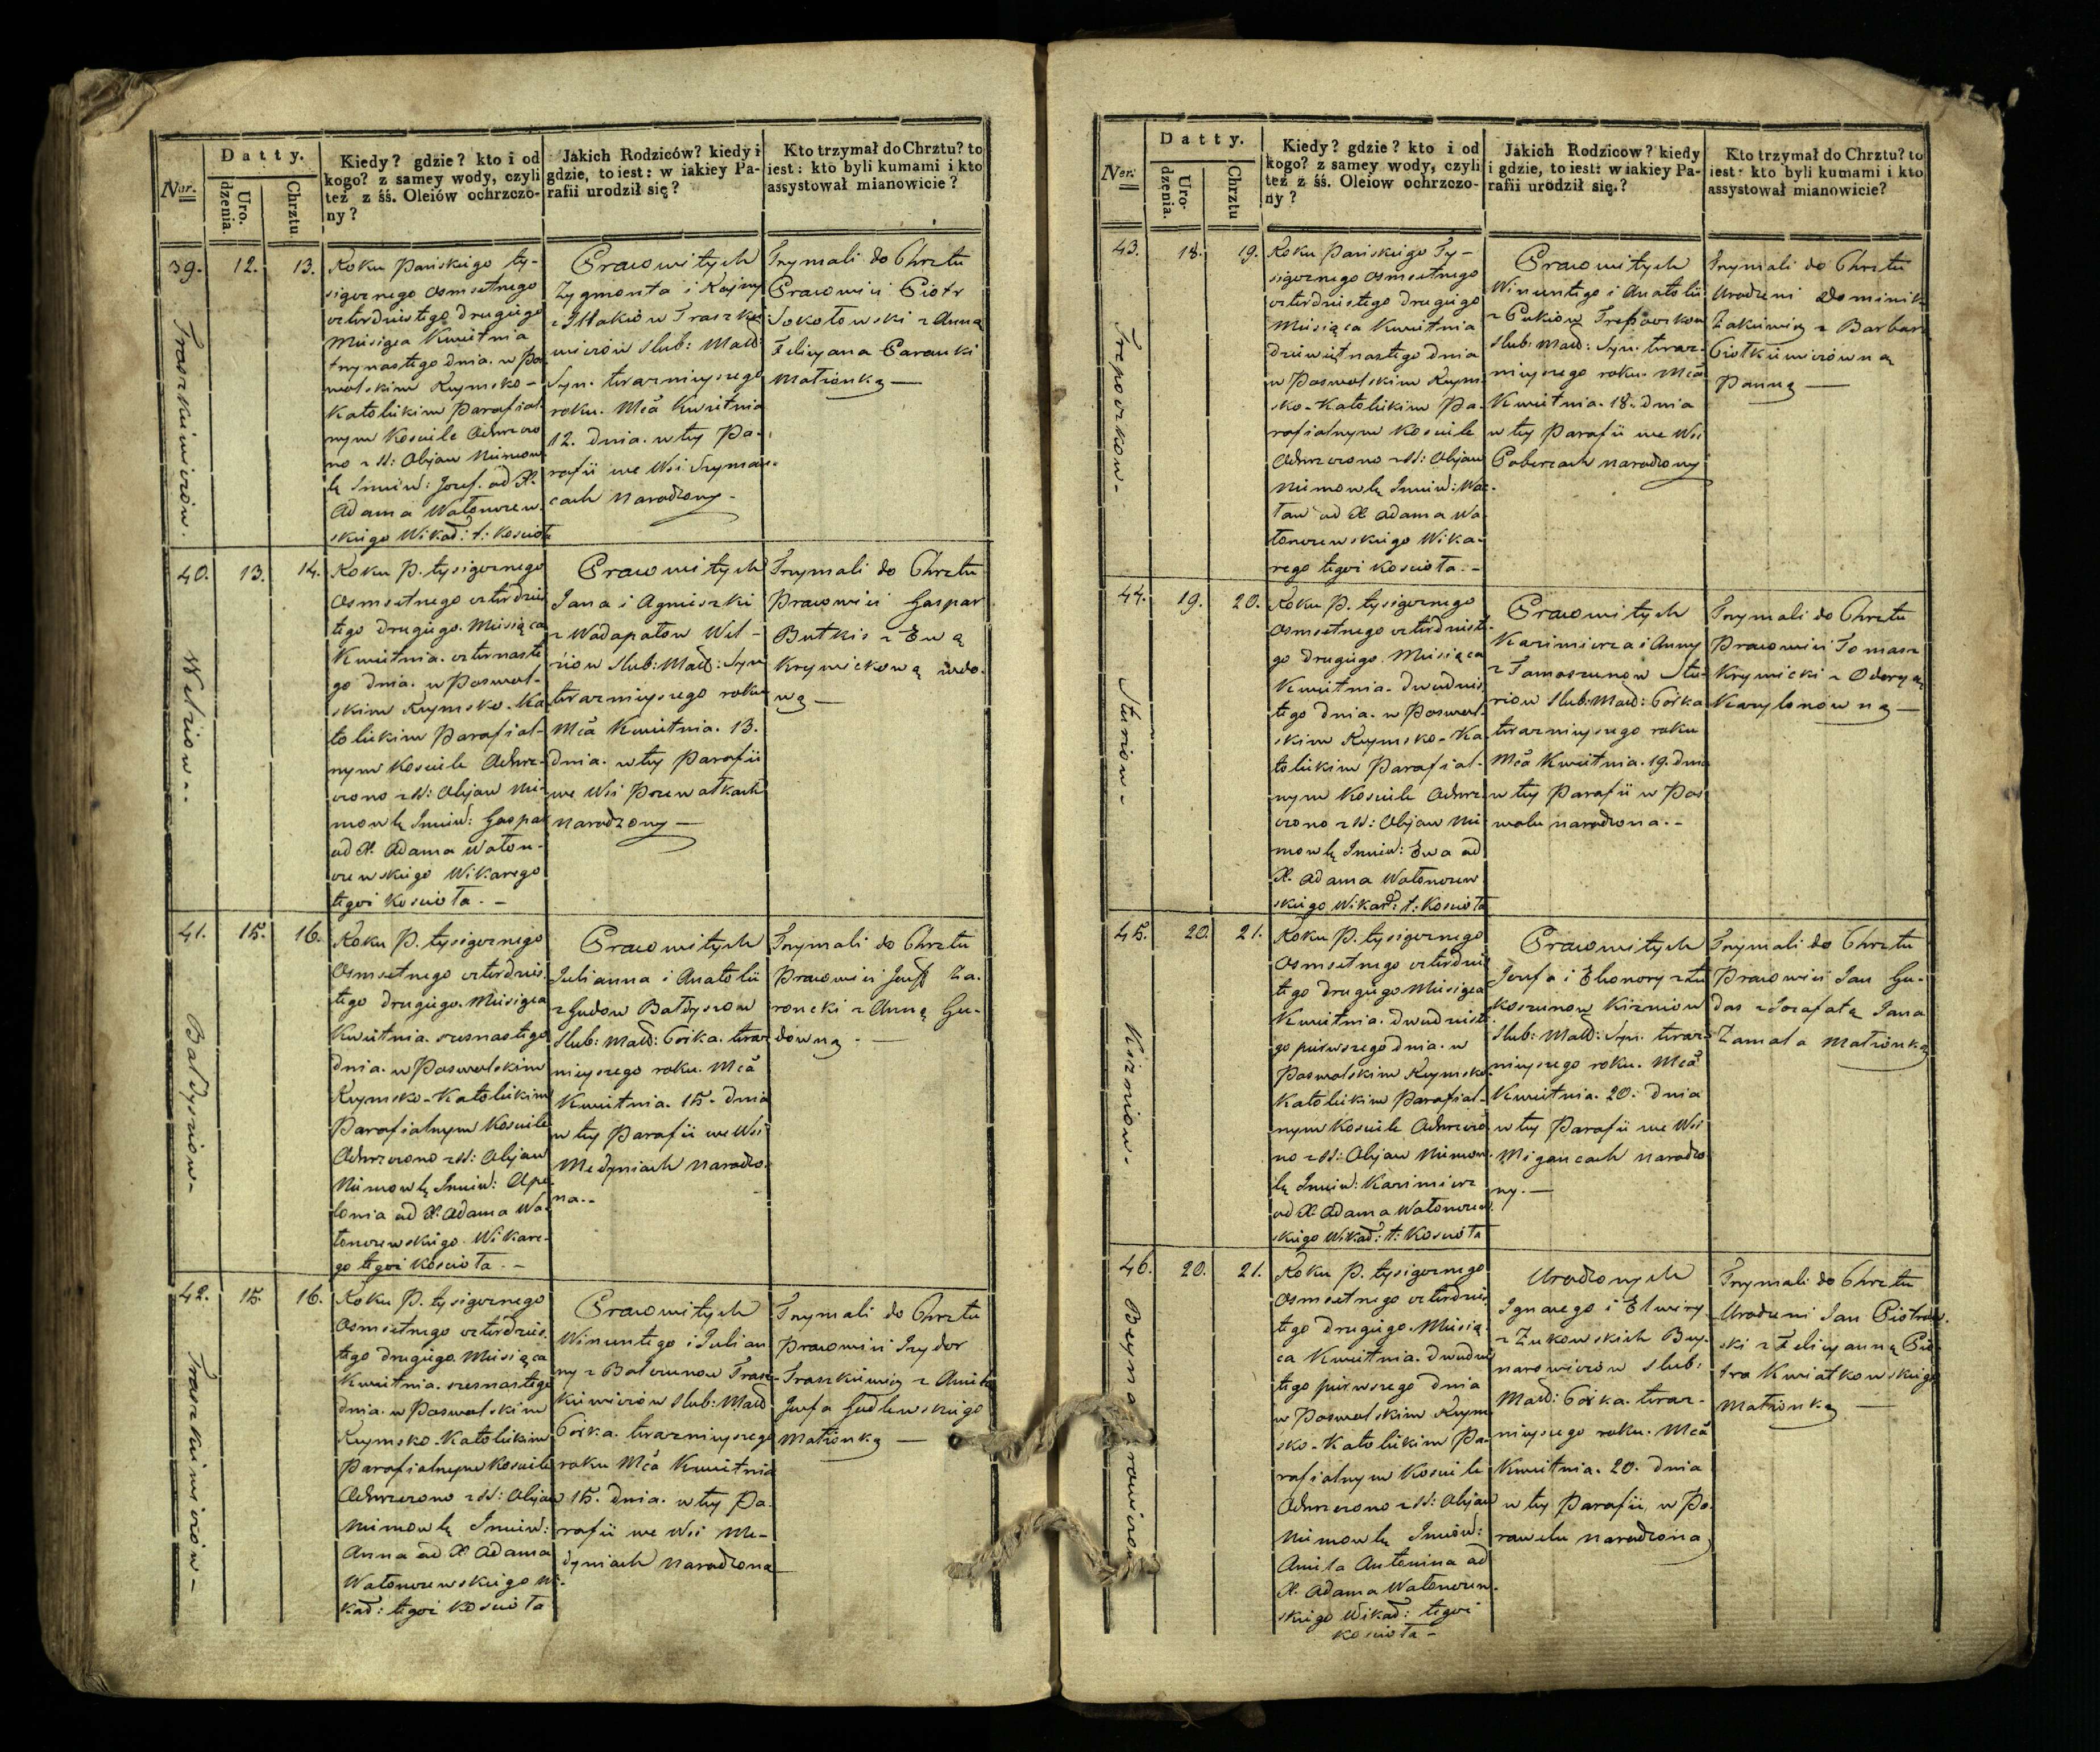 Ner.
Datty.
Uro.
dzenia.
Chrztu
Kiedy? gdzie? kto i od
kogo? z samey wody, czyli
też z śś. Oleiów ochrzczo-
ny?
Jakich Rodziców? kiedy i
gdzie, to iest: w iakiey Pa-
rafii urodził się?
Kto trzymał do Chrztu? to
iest: kto byli kumami i kto
assystował mianowicie?
39.
Traszkiewiczów.
12.
13.
Roku Pańskiego ty-
siącznego osmsetnego
czterdziestego drugiego
Miesiąca Kwietnia
trzynastego dnia. w Po
swolskim Rzymsko-
Katolickim Parafial-
nym Kosciele Ochrzczo
no z SS: Olejow Niemow-
lę Imien: Jozef. od X.
Adama Wołonczew-
skiego Wikar: t: Kościoła
Pracowitych
Zygmonta i Rozyny
z Illakiow Traszkie
wiczów slub: Małż:
Syn. teraznieyszego
roku. Mca Kwietnia
12. dnia. w tey Pa-
rafii we Wsi Szyman-
cach Narodzony-
Trzymali do Chrztu
Pracowici Piotr
Sokołowski z Anną
Felicyana Parauki
Małżonką —
40.
Welziow-.
13.
14.
Roku P. tysiącznego
Osmsetnego czterdzies
tego drugiego. Miesiąca
Kwietnia. czternaste
go dnia. w Poswol-
skim Rzymsko-Ka
tolickim Parafial-
nym Kosciele Ochrz-
czono z SS: Olejow Nie-
mowlę Imien: Gaspar
od X. Adama Wołon-
czewskiego Wikarego
tegoż Kościoła. -
Pracowitych
Jana i Agnieszki
z Wadapałow Wel-
ziow Slub: Małż: Syn
teraznieyszego roku
Mca Kwietnia. 13.
dnia. w tey Parafii
we Wsi Pozewałkach
Narodzony—
Trzymali do Chrztu
Pracowici Gaspar
Butkis z Ewą
Krywickową wdo-
wą—
41.
Bałdyszow-
15.
16.
Roku P. tysiącznego
Osmsetnego czterdzies
tego drugiego. Miesiąca
Kwietnia. szesnastego
dnia. w Poswolskim
Rzymsko-Katolickim
Parafialnym Kosciele
Ochrzczono z SS: Olejow
Niemowlę Imien: Apo
lonia od X. Adama Wo-
łonczewskiego Wikare-
go tegoż Kościoła. -
Pracowitych
Julianna i Anatolii
z Gudow Bałdyszow
Slub: Małż: Córka. teraz
nieyszego roku. Mca
Kwietnia. 15. dnia
w tey Parafii we Wsi
Medyniach Narodzo-
na.-
Trzymali do Chrztu
Pracowici Józef Za-
roncki z Anną Gu-
downą. —
42.
Traszkiewiczow-
15.
16.
Roku P. tysiącznego
Osmsetnego czterdzies.
tego drugiego. Miesiąca
Kwietnia. szesnastego
dnia. w Poswolskim
Rzymsko-Katolickim
Parafialnym Kosciele
Ochrzczono z SS: Olejow
Niemowlę Imien:
Anna od X. Adama
Wołonczewskiego Wi-
kar: tegoż Kościoła
Pracowitych
Wincentego i Julian
ny z Balczunow Trasz-
kiewiczow Slub: Małż
Córka. teraznieyszego
roku Mca Kwietnia
15. dnia. w tey Pa-
rafii we Wsi Me-
dyniach Narodzona
Trzymali do Chrztu
pracowici Izydor
Traszkiewicz z Anielą
Jozefa Gudlewskiego
Małżonką —
Ner.
Datty.
Uro-
dzenia.
Chrztu
Kiedy? gdzie? kto i od
kogo? z samey wody, czyli
też z śś. Oleiow ochrzczo-
ny?
Jakich Rodziców? kiedy
i gdzie, to iest: w iakiey Pa-
rafii urodził się?
Kto trzymał do Chrztu? to
iest: kto byli kumami i kto
assystował mianowicie?
43.
Treparkow-
18.
19.
Roku Pańskiego Ty-
siącznego Osmsetnego
czterdziestego drugiego
Miesiąca Kwietnia
dziewiętnastego dnia
w Poswolskim Rzym-
sko-Katolickim Pa-
rafialnym Kosciele
Ochrzczono z SS: Olejow
Niemowlę Imien: Wac-
ław od X. Adama Wo-
łonczewskiego Wika-
rego tegoż Kościoła. -
Pracowitych
Wincentego i Anatolii
z Pukiow Treparkow
Slub: Małż: Syn. teraz-
nieyszego roku. Mca
Kwietnia. 18. dnia
w tey Parafii we Wsi
Goberzach narodzony
Trzymali do Chrztu
Urodzeni Dominik
Zakiewicz z Barbarą
Piotkiewiczówną
Panną —
44.
Sturiow-
19.
20.
Roku P. tysiącznego
Osmsetnego czterdzieste-
go drugiego. Miesiąca
Kwietnia. dwudzies
tego dnia. w Poswol-
skim Rzymsko-Ka
tolickim Parafial-
nym Kosciele Ochrz-
czono z SS: Olejow Nie
mowlę Imien: Ewa od
X. Adama Wołonczew
skiego Wikar: t: Kościoła
Pracowitych
Kazimierza i Anny
z Tamoszunow Stu-
riow Slub: Małż: Córka
teraznieyszego roku
Mca Kwietnia. 19. dnia
w tey Parafii w Pos
wolu narodzona.-
Trzymali do Chrztu
Pracowici Tomasz
Krywicki z Odorcyą
Karylonówną—
45.
Kizniow-
20.
21.
Roku P. tysiącznego
Osmsetnego czterdzies
tego drugiego Miesiąca
Kwietnia. dwudzieste
go pierwszego dnia. w
Poswolskim Rzymsko-
Katolickim Parafial-
nym Kosciele Ochrzczo
no z SS: Olejow Niemow-
lę Imien: Kazimierz
od X. Adama Wołonczew
skiego Wikar: t: Kościoła
Pracowitych
Jozefa i Elonory z Lu
koszunow Kizniow
Slub: Małż: Syn. teraz-
nieyszego roku. Mca
Kwietnia. 20. dnia
w tey Parafii we Wsi
Migancach narodzo
ny.—
Trzymali do Chrztu
Pracowici Jan Gu-
das z Jozafatą Jana
Zamata Małżonką
46.
20.
21.
Roku P. tysiącznego
Osmsetnego czterdzies
tego drugiego. Miesią-
ca Kwietnia. dwudzies
tego pierwszego dnia
w Poswolskim Rzym
sko-Katolickim Pa-
rafialnym Kosciele
Ochrzczono z SS: Olejow
Niemowlę Imion:
Aniela Antonina od
X. Adama Wołonczew-
skiego Wikar: tegoż
Kościoła-
Urodzonych
Ignacego i Elwiry
z Żukowskich Bey-
narowiczów Slub:
Małż: Córka. teraz-
nieyszego roku. Mca
Kwietnia. 20. dnia
w tey Parafii, w Po-
rawelu narodzona
Trzymali do Chrztu
Urodzeni Jan Piotrow-
ski z Felicyanną Pio-
tra Kwiatkowskiego
Małżonką —